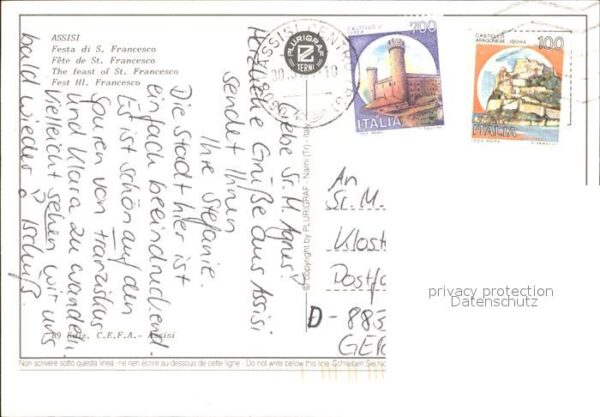 ASSISI
Festa di S. Francesco
Fête de St. Francesco
The feast of St. Francesco
Fest Hl. Francesco
Liebe Sr. M. Agnes!
Herzliche Grüße aus Assisi
sendet Ihnen
Ihre Stefanie.
Die Stadt hier ist
einfach beeindruckend.
Es ist schön auf den
Spuren von Franziskus
und Klara zu wandern.
Vielleicht sehen wir uns
bald wieder? Tschüß.
89 Ediz. C.E.F.A. - Assisi
© Copyright by PLURIGRAF - Narni (Tr) - Italy
PLURIGRAF
TERNI
ASSISI CENTRO
30.
18
CASTELLO DI
IVREA
700
ITALIA
CASTELLO
ARAGONESE - ISCHIA
100
ITALIA
An
Sr. M.
Klost
Postfa
D-885
GER
privacy protection
Datenschutz
Non scrivere sotto questa linea - ne rien écrire au-dessous de cette ligne - Do not write below this line - Schreiben Sie